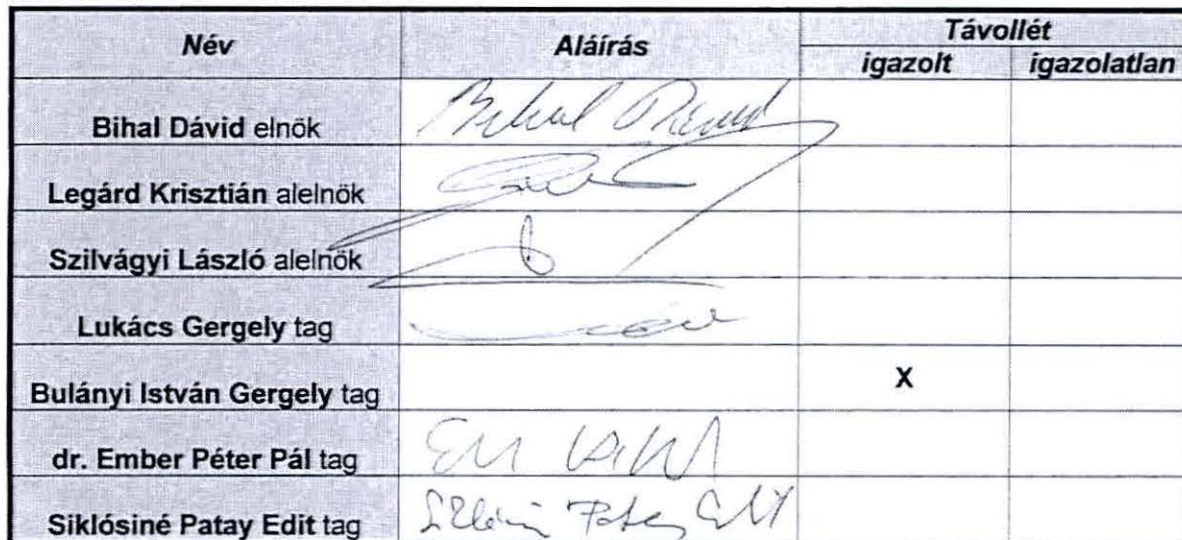 Név Aláírás Távollét
igazolt igazolatlan
Bihal Dávid elnök Bihal Dávid
Legárd Krisztián alelnök
Szilvágyi László alelnök
Lukács Gergely tag
Bulányi István Gergely tag X
dr. Ember Péter Pál tag
Siklósiné Patay Edit tag Siklósiné Patay Edit